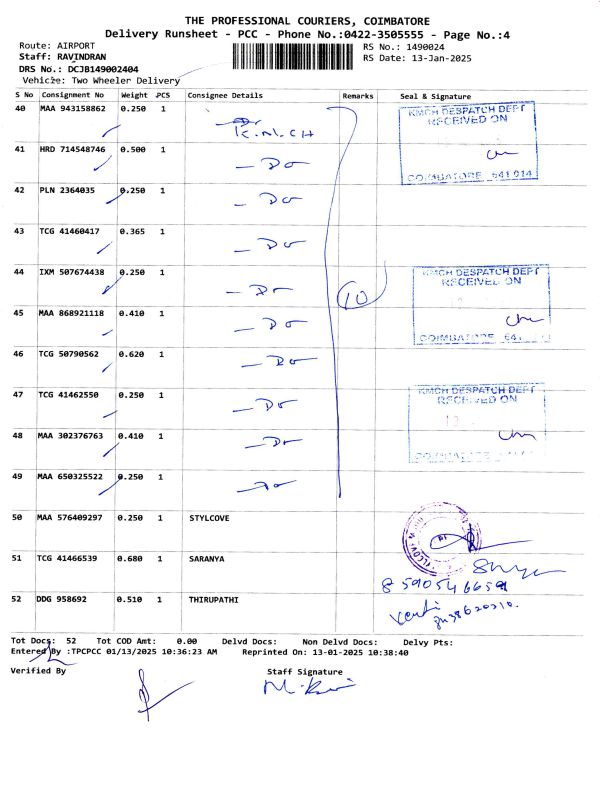 THE PROFESSIONAL COURIERS, COIMBATORE
Delivery Runsheet - PCC - Phone No.:0422-3505555 - Page No.:4
Route: AIRPORT
RS No.: 1490024
Staff: RAVINDRAN
RS Date: 13-Jan-2025
DRS No.: DCJB149002404
Vehicle: Two Wheeler Delivery
S No Consignment No Weight PCS Consignee Details Remarks Seal & Signature
40 MAA 943158862 0.250 1 K.M.CH
KMCH DESPATCH DEPT
RECEIVED ON
COIMBATORE 641 014
41 HRD 714548746 0.500 1 — Do
42 PLN 2364035 0.250 1 — Do
43 TCG 41460417 0.365 1 — Do
44 IXM 507674438 0.250 1 — Do
10
KMCH DESPATCH DEPT
RECEIVED ON
COIMBATORE 641
45 MAA 868921118 0.410 1 — Do
46 TCG 50790562 0.620 1 — Do
47 TCG 41462550 0.250 1 — Do
KMCH DESPATCH DEPT
RECEIVED ON
48 MAA 302376763 0.410 1 — Do
49 MAA 650325522 0.250 1 — Do
50 MAA 576409297 0.250 1 STYLCOVE
51 TCG 41466539 0.680 1 SARANYA
52 DDG 958692 0.510 1 THIRUPATHI
Tot Docs: 52 Tot COD Amt: 0.00 Delvd Docs: Non Delvd Docs: Delvy Pts:
Entered By :TPCPCC 01/13/2025 10:36:23 AM Reprinted On: 13-01-2025 10:38:40
Verified By Staff Signature